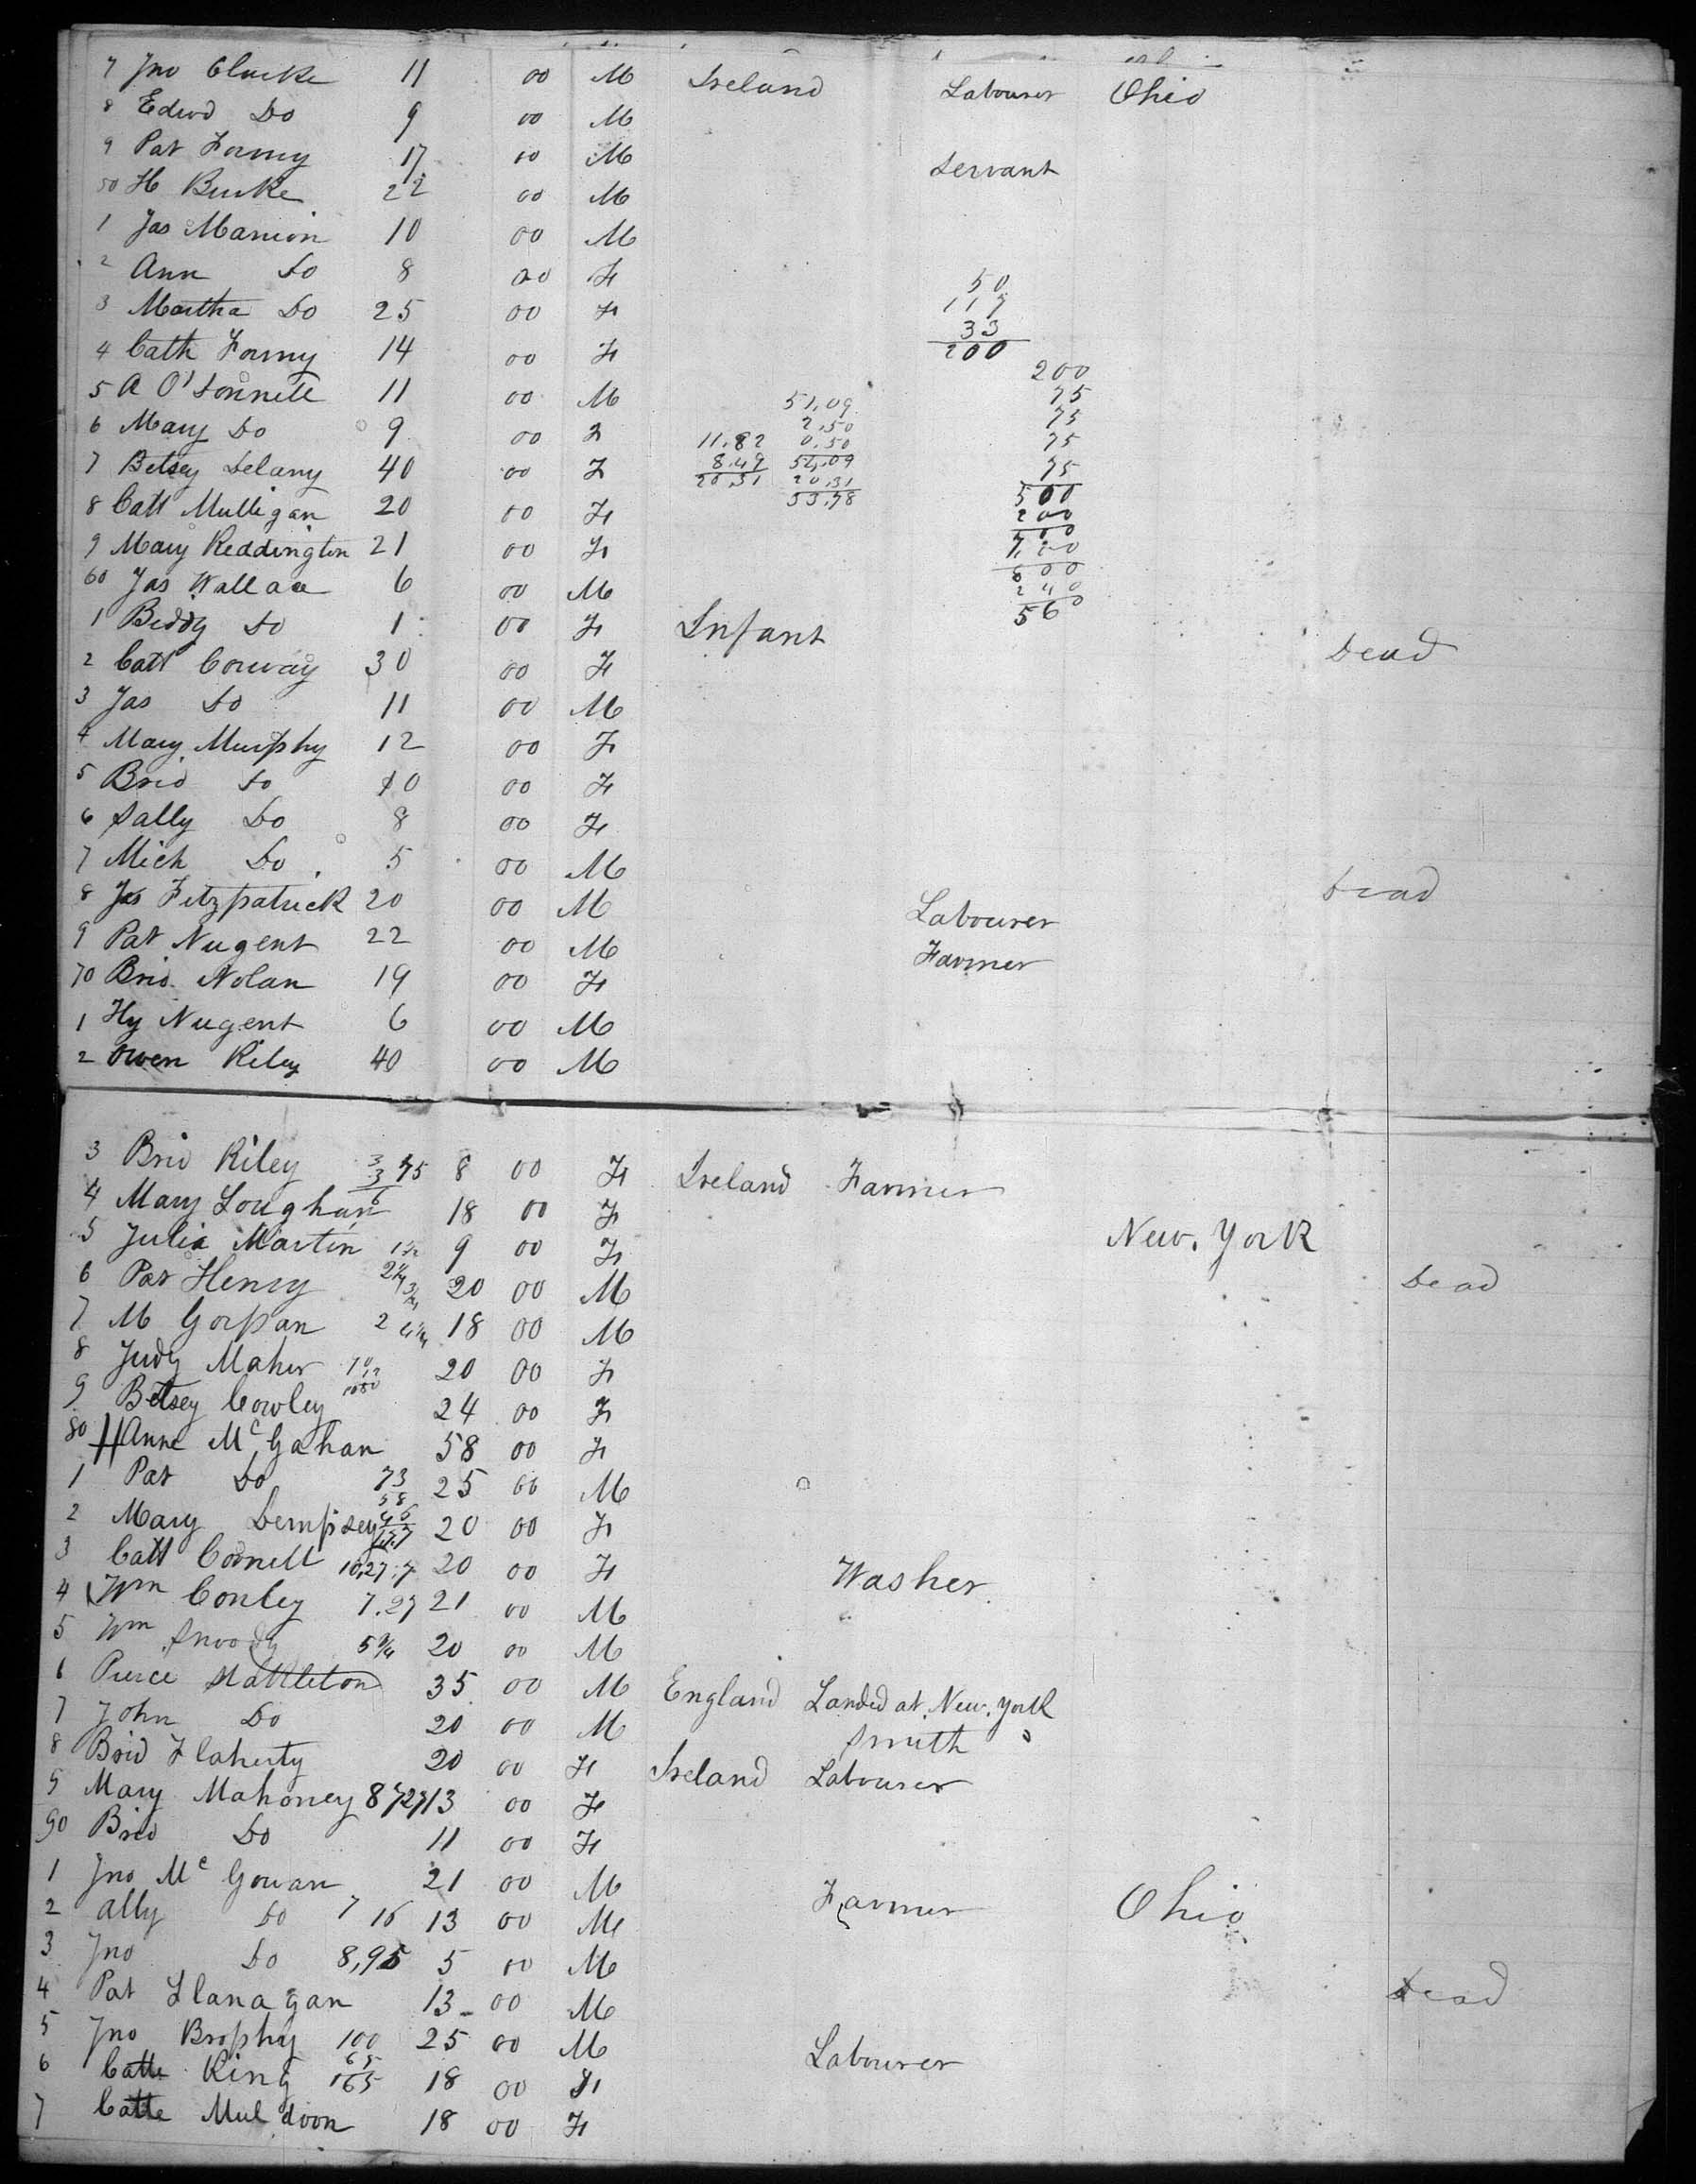 7 Jno Clucke 11 00 M Ireland Labourer Ohio
8 Edwd Do 9 00 M
9 Pat Formy 17 00 M Servant
50 H Burke 22 00 M
1 Jas Manion 10 00 M
2 Ann Do 8 00 F
3 Martha Do 25 00 F
4 Cath Formy 14 00 F
5 A O'Donnell 11 00 M
6 Mary Do 9 00 F
7 Betsey Delany 40 00 F
8 Catt Mulligan 20 00 F
9 Mary Reddington 21 00 F
60 Jas Wallace 6 00 M
1 Biddy Do 1 00 F Infant Dead
2 Catt Conway 30 00 F
3 Jas Do 11 00 M
4 Mary Murphy 12 00 F
5 Brid Do 10 00 F
6 Sally Do 8 00 F
7 Mich Do 5 00 M Dead
8 Jas Fitzpatrick 20 00 M Labourer
9 Pat Nugent 22 00 M Farmer
70 Brid Nolan 19 00 F
1 Hy Nugent 6 00 M
2 Owen Riley 40 00 M
50
117
33
200
11.82
8.49
20.31
51,09
2,50
0,50
54,09
20,31
33,78
200
75
75
75
75
500
200
3 Brid Riley 8 00 F Ireland Farmer
4 Mary Loughan 18 00 F New. York
5 Julia Martin 9 00 F Dead
6 Pat Henry 20 00 M
7 M Gorpan 18 00 M
8 Judy Maher 20 00 F
9 Betsey Cowley 24 00 F
80 Anne McGahan 58 00 F
1 Pat Do 25 00 M
2 Mary Dempsey 20 00 F
3 Catt Connell 20 00 F Washer
4 Wm Conley 7.27 21 00 M
5 Wm Snoody 5 3/4 20 00 M
6 Pierce Stattleton 35 00 M England Landed at New. York
7 John Do 20 00 M Smith
8 Brid Flaherty 20 00 F Ireland Labourer
9 Mary Mahoney 13 00 F
90 Brid Do 11 00 F
1 Jno Mc Gowan 21 00 M Farmer Ohio
2 Ally Do 7 16 13 00 M
3 Jno Do 8,95 5 00 M Dead
4 Pat Flanagan 13 00 M
5 Jno Brophy 100 25 00 M Labourer
6 Catte King 65 165 18 00 F
7 Catte Muldoon 18 00 F